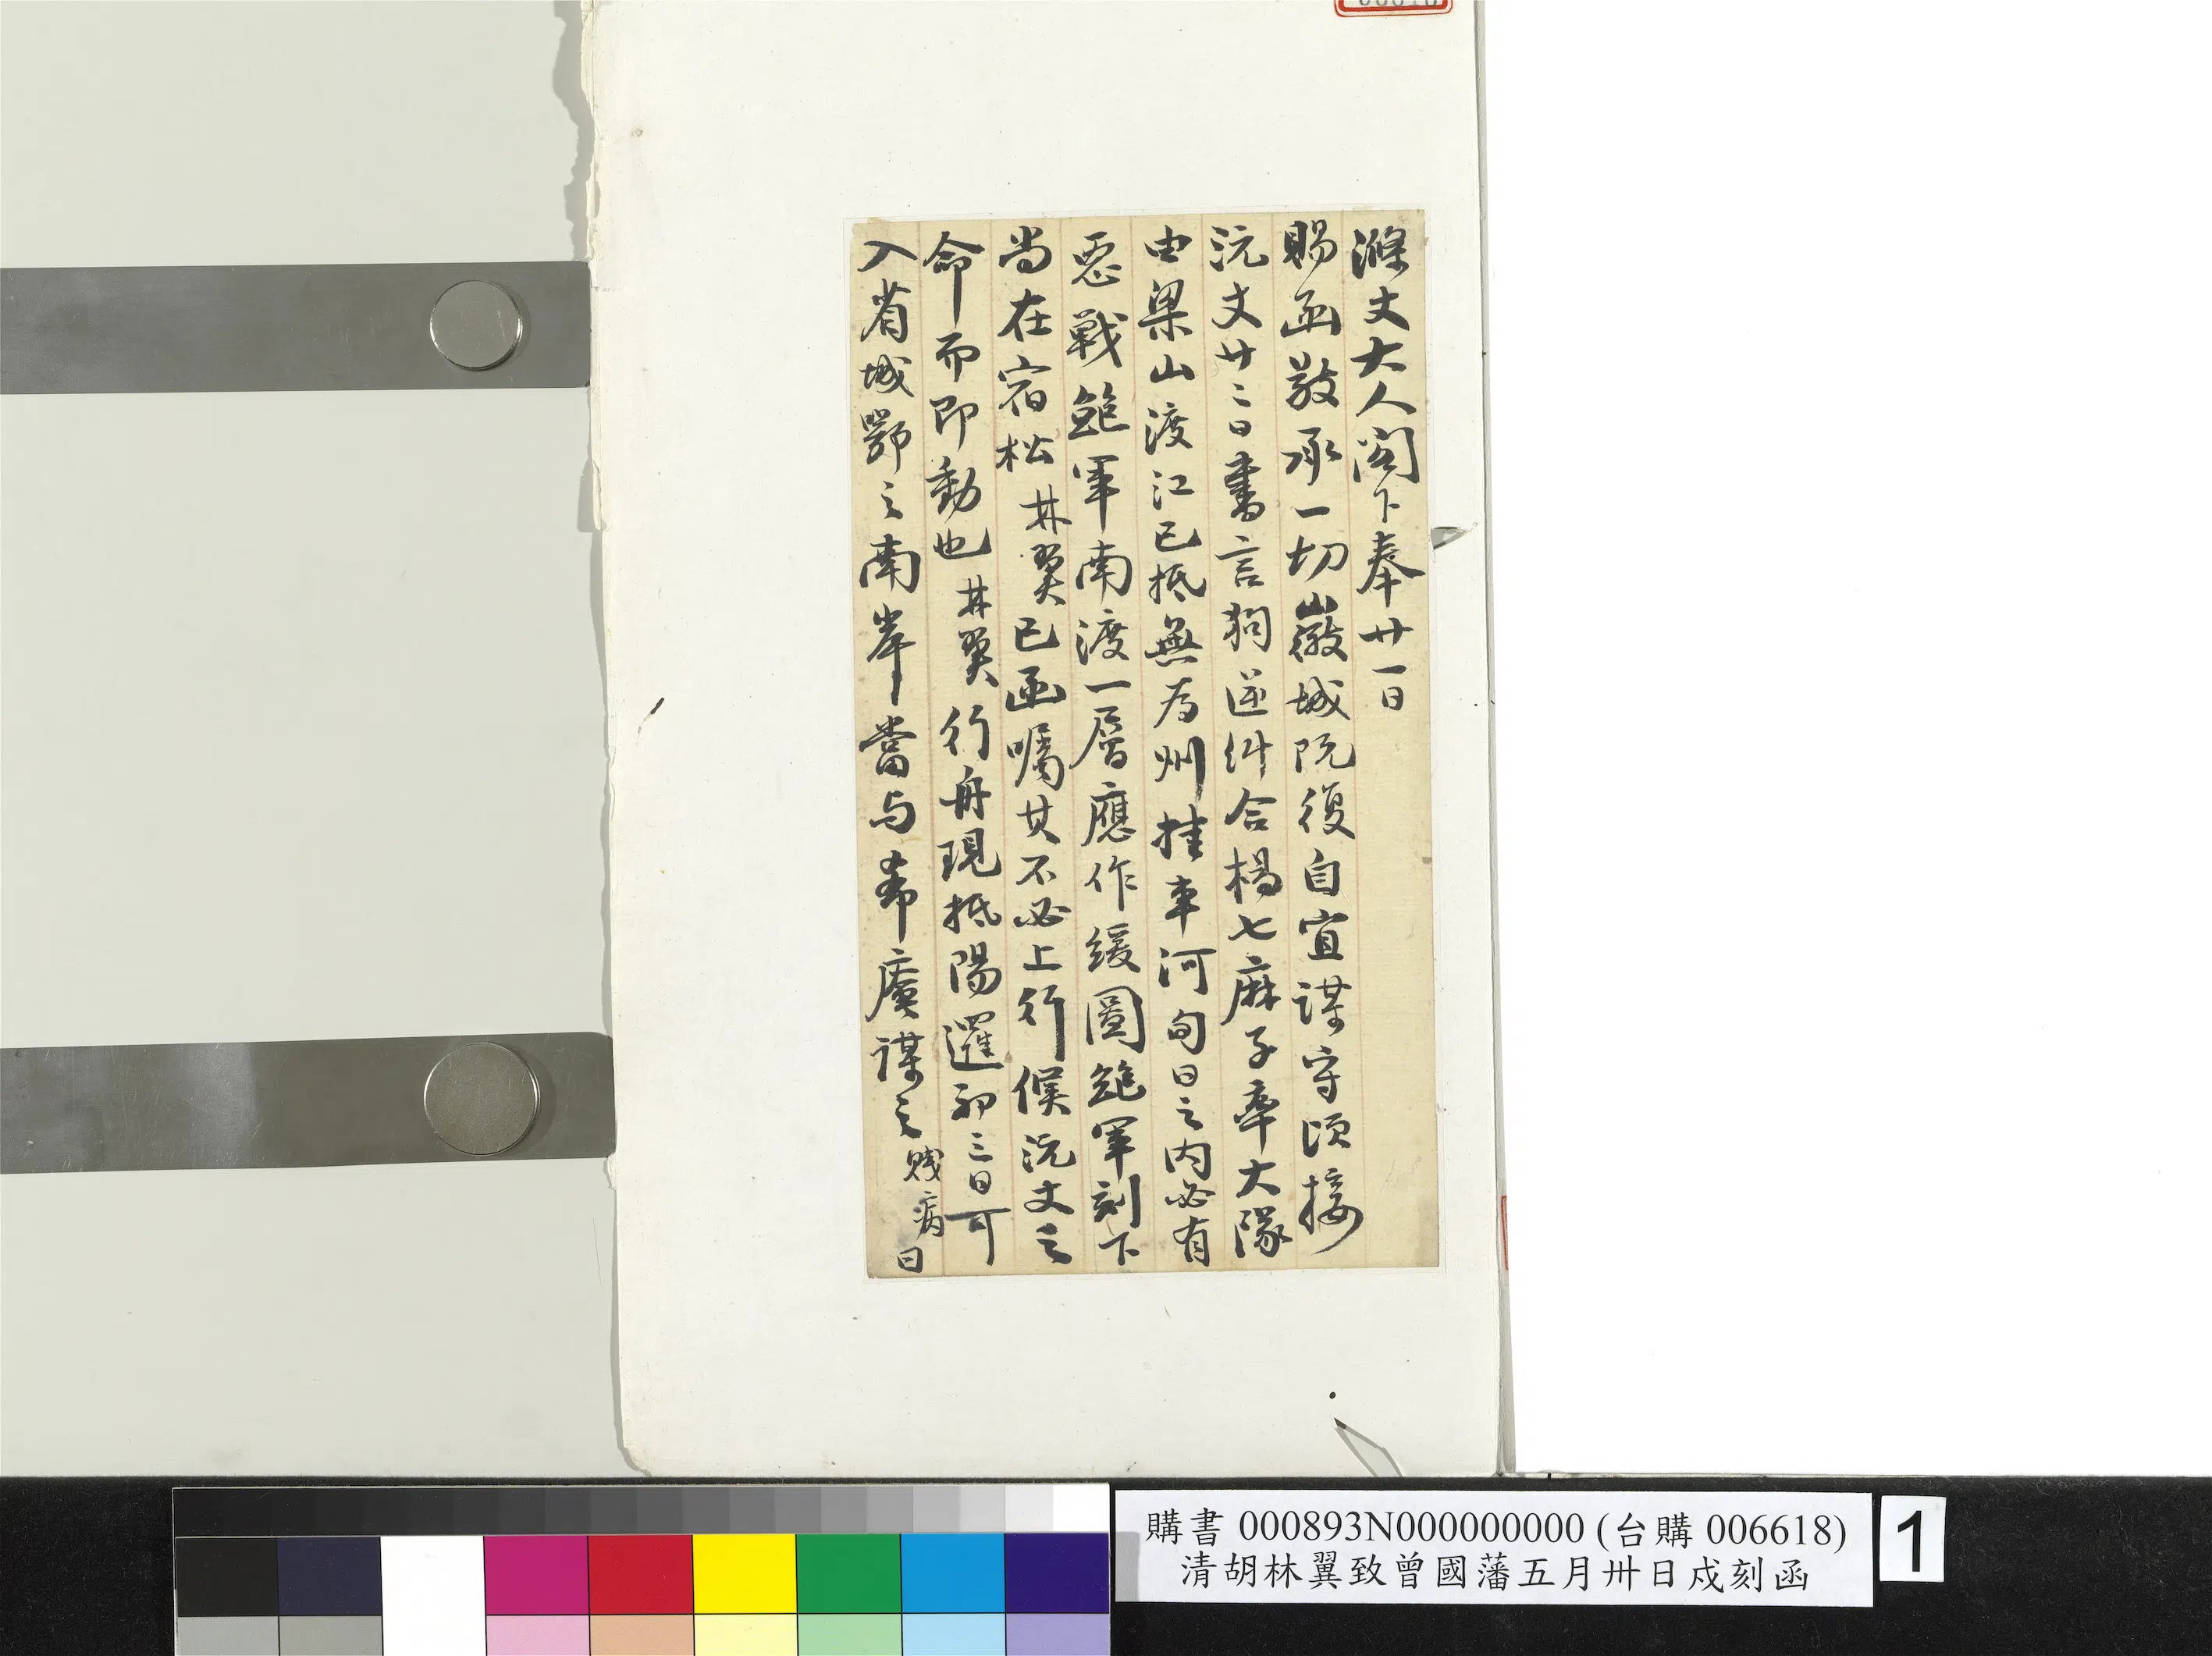 滌丈大人閣下奉廿一日
賜函敬承一切徽城既復自宜謀守頃接
沅丈廿三日書言狗逆糾合楊七麻子率大隊
由梁山渡江已抵無為州挂車河旬日之內必有
惡戰鮑軍南渡一層應作緩圖鮑軍刻下
尚在宿松林翼已函囑其不必上行候沅丈之
命而即動也林翼行舟現抵陽邏初三日可
入省城鄂之南岸當与希庵謀之賤病日
購書 000893N000000000 (台購 006618)
清胡林翼致曾國藩五月卅日戍刻函
1